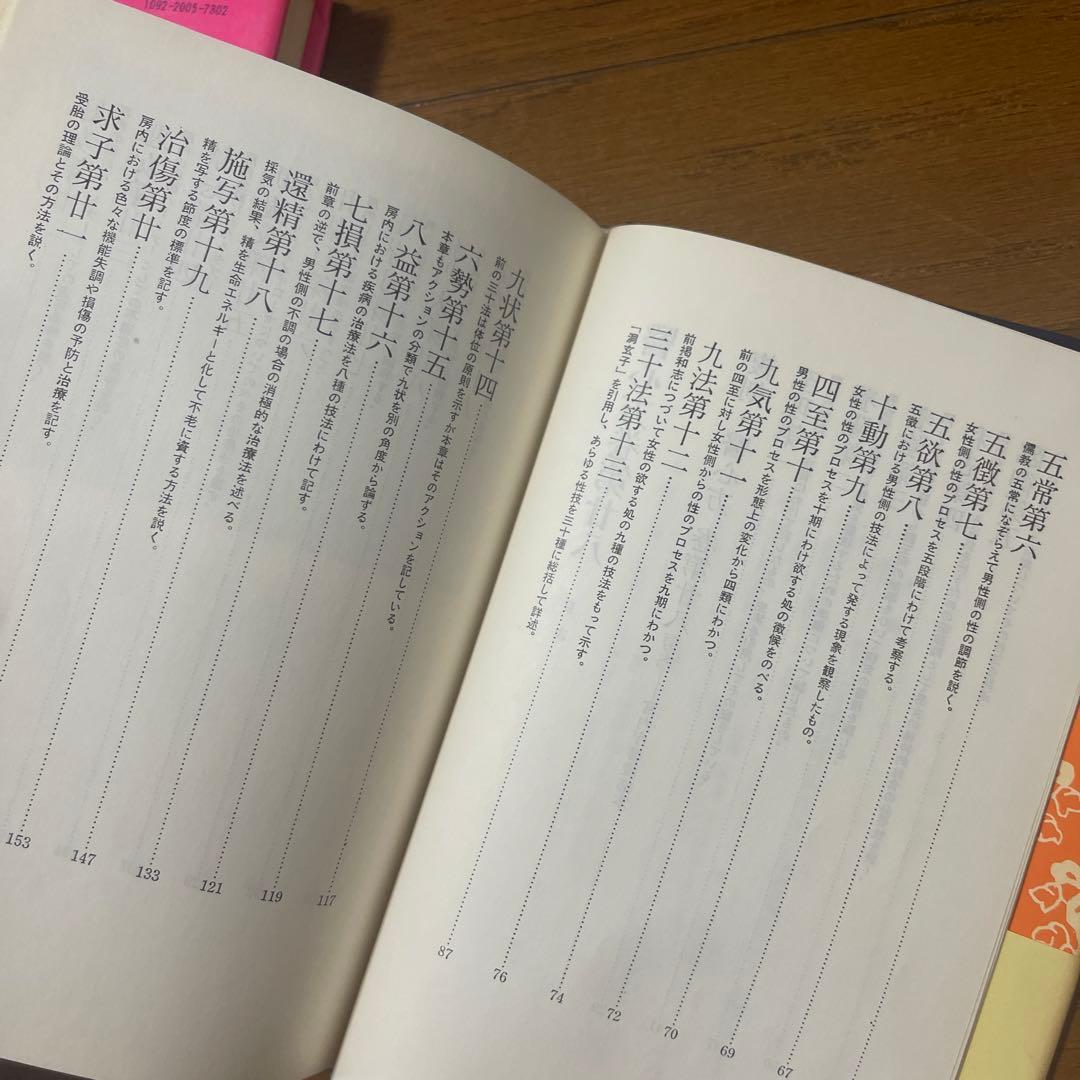 1092-2005-7302
五常第六
儒教の五常になぞらえて男性側の性の調節を説く。
五徴第七 67
女性側の性のプロセスを五段階にわけて考察する。
五欲第八 69
五徴における男性側の技法によって発する現象を観察したもの。
十動第九 70
女性の性のプロセスを十期にわけ欲する処の徴候をのべる。
四至第十 72
男性の性のプロセスを形態上の変化から四類にわかつ。
九気第十一 74
前の四至に対し女性側からの性のプロセスを九期にわかつ。
九法第十二 76
前掲和志につづいて女性の欲する処の九種の技法をもって示す。
三十法第十三 87
「洞玄子」を引用し、あらゆる性技を三十種に総括して詳述。
九状第十四 117
前の三十法は体位の原則を示すが本章はそのアクションを記している。
六勢第十五 119
本章もアクションの分類で九状を別の角度から論ずる。
八益第十六 121
房内における疾病の治療法を八種の技法にわけて記す。
七損第十七 133
前章の逆で、男性側の不調の場合の消極的な治療法を述べる。
還精第十八 147
採気の結果、精を生命エネルギーと化して不老に資する方法を説く。
施写第十九 153
精を写する節度の標準を記す。
治傷第廿
房内における色々な機能失調や損傷の予防と治療を記す。
求子第廿一
受胎の理論とその方法を説く。